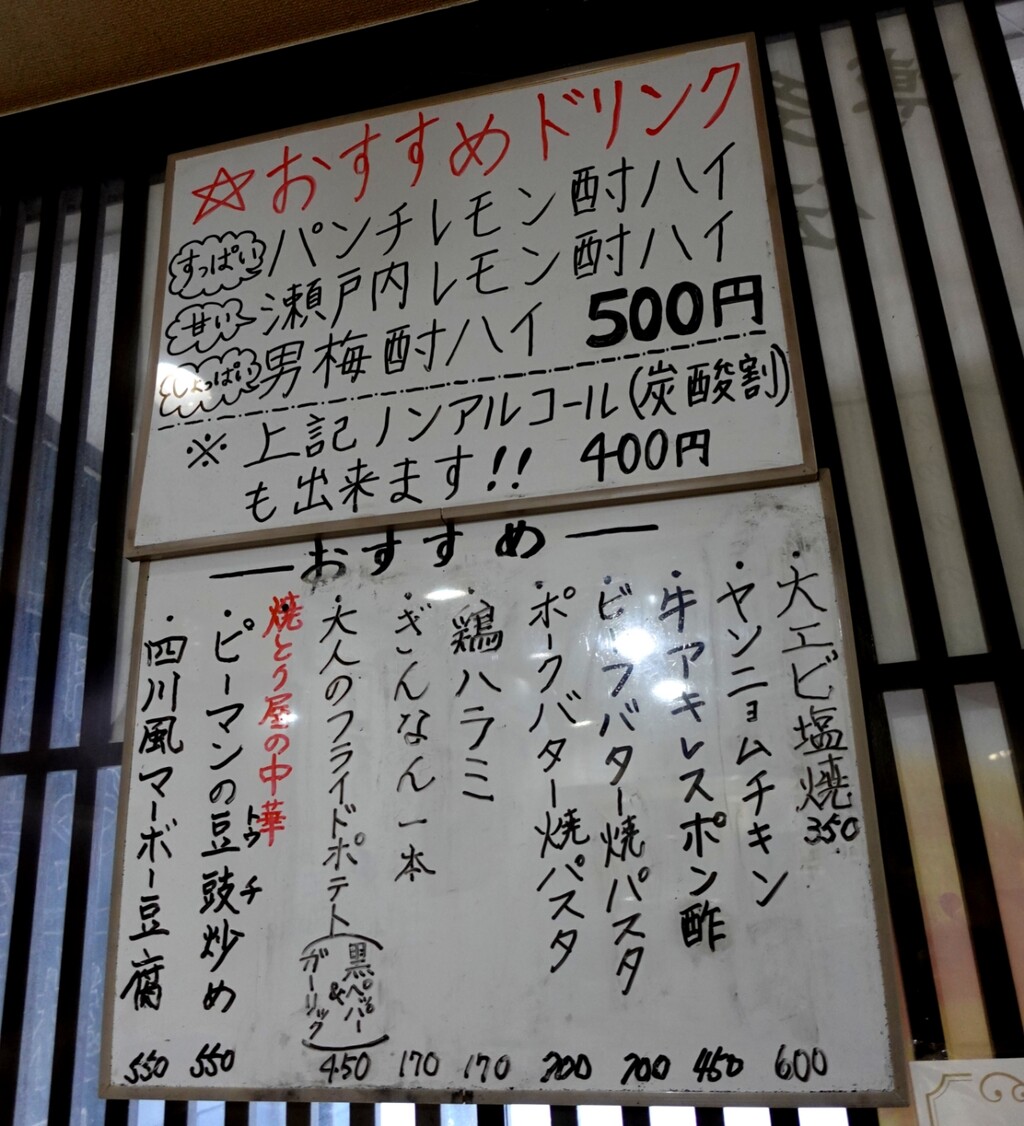 ☆おすすめドリンク
すっぱい パンチレモン酎ハイ
甘い 瀬戸内レモン酎ハイ
しょっぱい 男梅酎ハイ 500円
※ 上記ノンアルコール(炭酸割)
も出来ます!! 400円
おすすめ
・大エビ塩焼 350
・ヤンニョムチキン 600
・牛アキレスポン酢 450
・ビーフバター焼パスタ 700
・ポークバター焼パスタ 700
・鶏ハラミ 170
・ぎんなん一本 170
・大人のフライドポテト(黒ペッパー&ガーリック) 450
焼とり屋の中華
・ピーマンの豆豉炒め 550
トウチ
・四川風マーボー豆腐 550